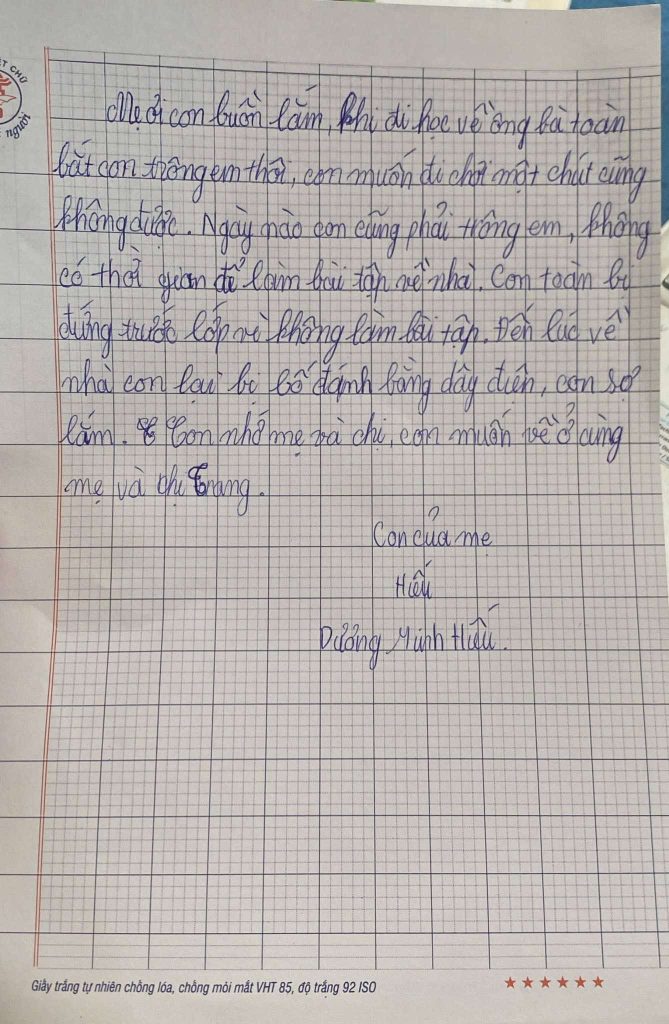 T CHỮ
người
Mẹ ơi con buồn lắm, khi đi học về ông bà toàn
bắt con trông em thôi, con muốn đi chơi một chút cũng
không được. Ngày nào con cũng phải trông em, không
có thời gian để làm bài tập về nhà. Con toàn bị
đứng trước lớp vì không làm bài tập. Đến lúc về
nhà con lại bị bố đánh bằng dây điện, con sợ
lắm. Con nhớ mẹ và chị, con muốn về ở cùng
mẹ và chị Trang.
Con của mẹ
Hiếu
Dương Minh Hiếu.
Giấy trắng tự nhiên chống lóa, chống mỏi mắt VHT 85, độ trắng 92 ISO